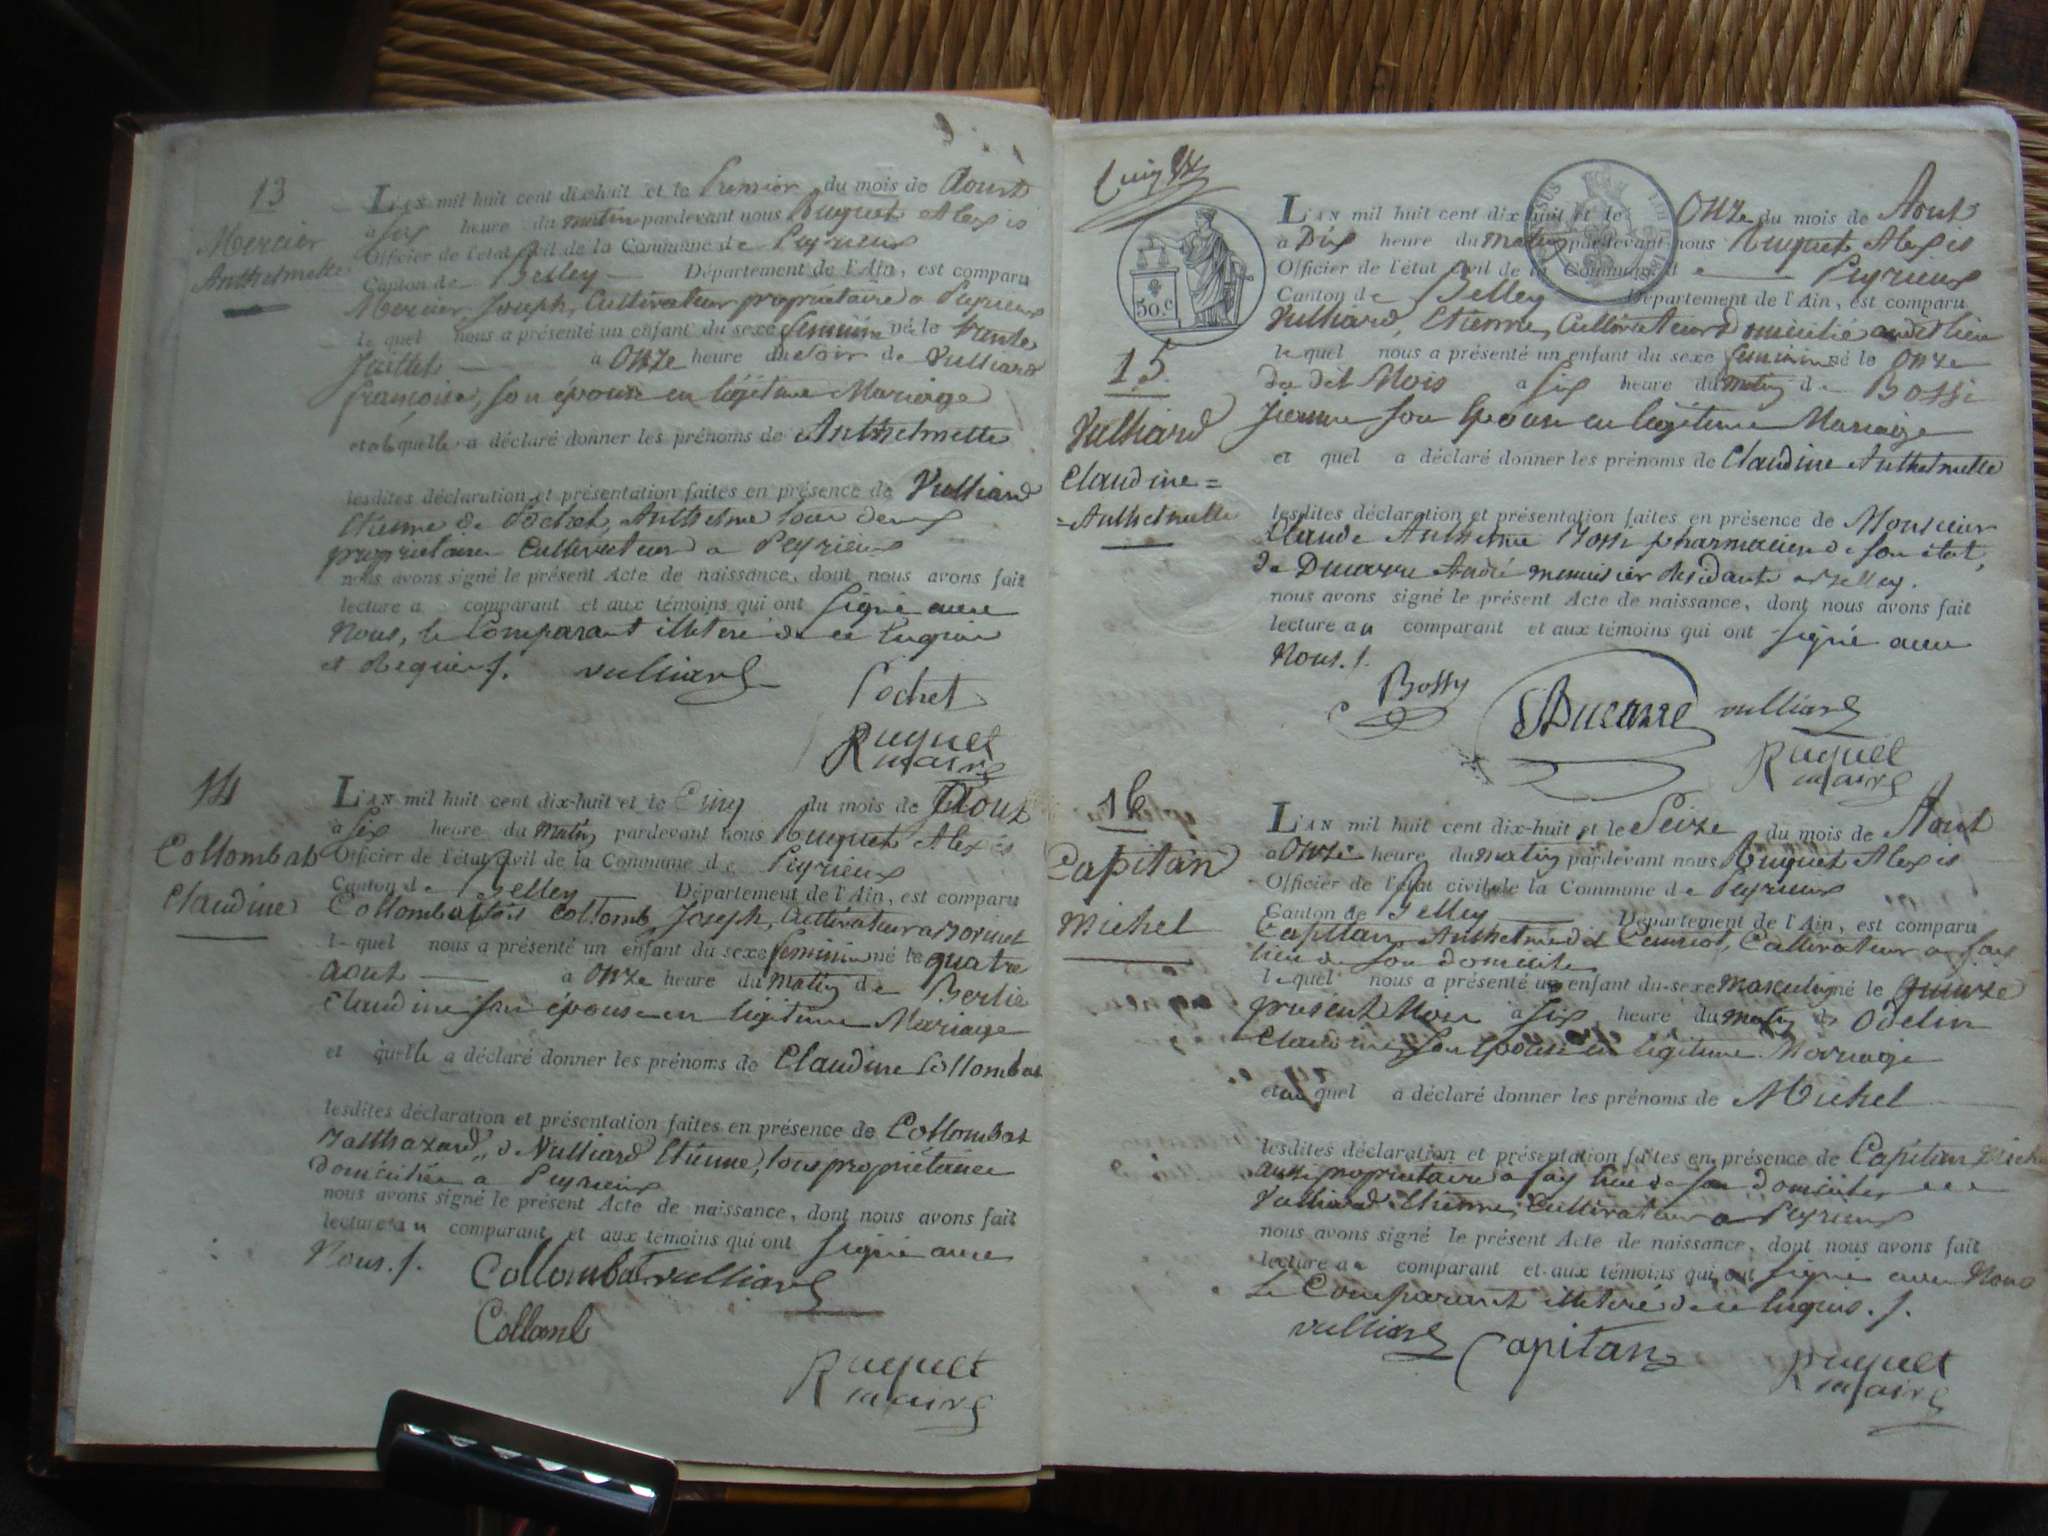 13
Mercier
Anthelmette
L'AN mil huit cent dix-huit et le Premier du mois de Aoust
à Six heure du matin pardevant nous Ruquet Alexis
Officier de l'état civil de la Commune de Peyrieux
Canton de Belley Département de l'Ain, est comparu
Mercier, Joseph, Cultivateur propriétaire a Peyrieux
lequel nous a présenté un enfant du sexe feminin né le trente
Juillet à Onze heure du soir de Vulliard
françoise, son épouse en légitime Mariage
et a laquelle a déclaré donner les prénoms de Anthelmette
lesdites déclaration et présentation faites en présence de Vulliard
Etienne & Pochet, Anthelme tous deux
propriétaires Cultivateurs a Peyrieux
nous avons signé le présent Acte de naissance, dont nous avons fait
lecture au comparant et aux témoins qui ont signé avec
Nous, le Comparant illeteré de ce
et Requis./.
vulliard
Pochet
Ruquet
maire
14
Collombat
Claudine
L'AN mil huit cent dix-huit et le Cinq du mois de Aout
à Six heure du matin pardevant nous Ruquet Alexis
Officier de l'état civil de la Commune de Peyrieux
Canton de Belley Département de l'Ain, est comparu
Collombat Collomb, Joseph, Cultivateur a
lequel nous a présenté un enfant du sexe feminin né le quatre
aout à Onze heure du matin de Berlie
Claudine son épouse en légitime Mariage
et quelle a déclaré donner les prénoms de Claudine Collombat
lesdites déclaration et présentation faites en présence de Collombat
Balthazard, & Vulliard Etienne, tous propriétaires
domiciliés a Peyrieux
nous avons signé le présent Acte de naissance, dont nous avons fait
lecture au comparant et aux témoins qui ont signé avec
Nous./.
Collombat vulliard
Collomb
Ruquet
maire
50.c
15
Vulliard
Claudine=
=Anthelmette
L'AN mil huit cent dix-huit et le Onze du mois de Aout
à Dix heure du matin pardevant nous Ruquet Alexis
Officier de l'état civil de la Commune de Peyrieux
Canton de Belley Département de l'Ain, est comparu
Vulliard, Etienne, Cultivateur domicilié audit lieu
lequel nous a présenté un enfant du sexe feminin né le Onze
du dit Mois à Six heure du matin de Bossi
Jeanne son Epouse en légitime Mariage
et quel a déclaré donner les prénoms de Claudine Anthelmette
lesdites déclaration et présentation faites en présence de Monsieur
Claude Anthelme Bossi pharmacien de son état,
& Ducarre André menuisier résidants a Belley.
nous avons signé le présent Acte de naissance, dont nous avons fait
lecture au comparant et aux témoins qui ont signé avec
Nous./.
Bossy
Ducarre
vulliard
Ruquet
maire
16
Capitan
Michel
L'AN mil huit cent dix-huit et le Seize du mois de Aout
à Onze heure du matin pardevant nous Ruquet Alexis
Officier de l'état civil de la Commune de Peyrieux
Canton de Belley Département de l'Ain, est comparu
Capitan, Anthelme dit Cultivateur a fay
lieu de son domicile
lequel nous a présenté un enfant du sexe masculin né le quinze
présent Mois à Six heure du matin de Odelin
Claudine, son Epouse en légitime Mariage
et au quel a déclaré donner les prénoms de Michel
lesdites déclaration et présentation faites en présence de Capitan
aussi propriétaire a fay lieu de son domicile, &
Vulliard Etienne, Cultivateur a Peyrieux
nous avons signé le présent Acte de naissance, dont nous avons fait
lecture au comparant et aux témoins qui ont signé avec Nous
Le Comparant illeteré de ce Requis./.
vulliard
Capitan
Ruquet
maire